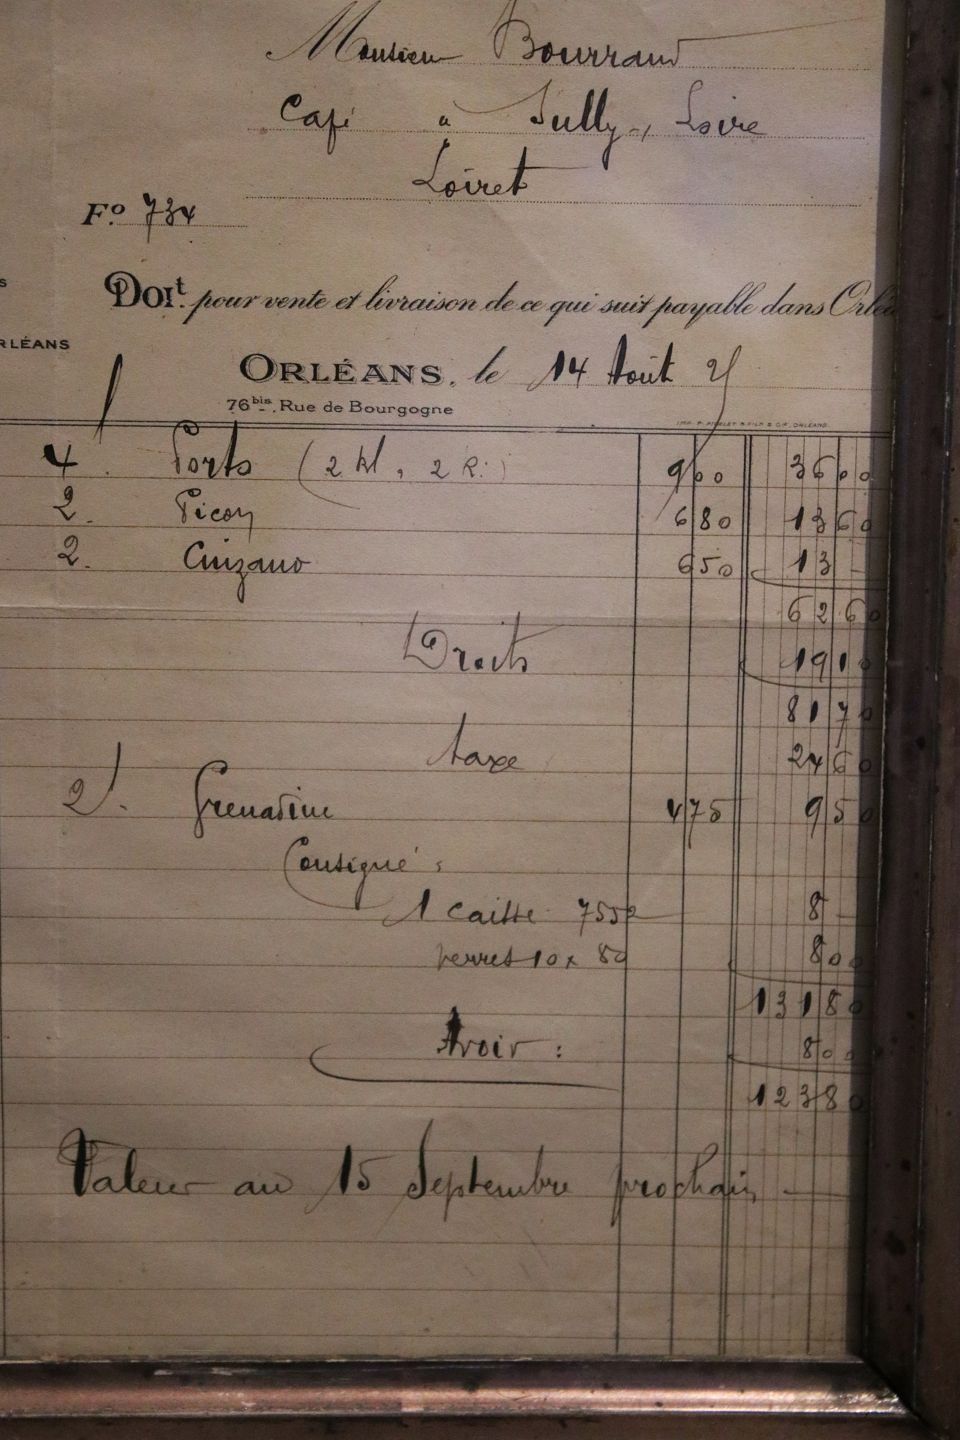 Monsieur Bourraud
Café à Sully, Loire
Loiret
F.º 734
Doit. pour vente et livraison de ce qui suit payable dans Orléa
RLÉANS
ORLÉANS, le 14 Août 25
76 bis, Rue de Bourgogne
4. Porto (2 Bl, 2 R.) 900 3600
2. Picon 680 1360
2. Cinzano 650 13 -
6260
Droits 1910
8170
taxe 2460
2. Grenadine 475 950
Consigné :
1 caisse 7552 8 -
verres 10 x 80 800
13180
Avoir : 800
12380
Valeur au 15 Septembre prochain -